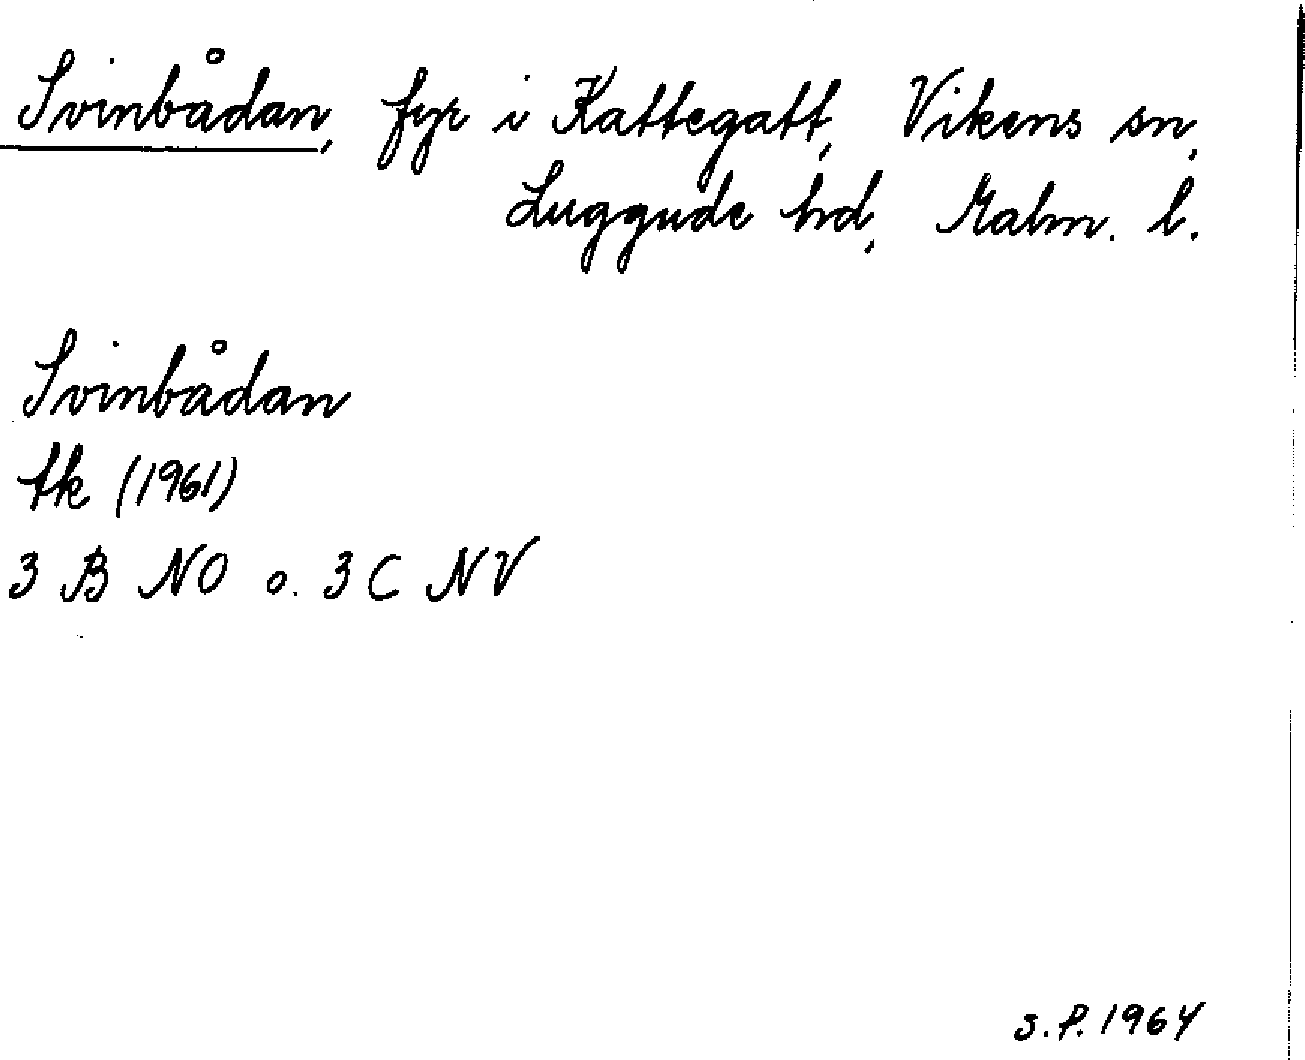 Svinbådan, fyr i Kattegatt, Vikens sn,
Luggude hd, Malm. l.
Svinbådan
tk (1961)
3 B NO o. 3 C NV
S.P. 1964